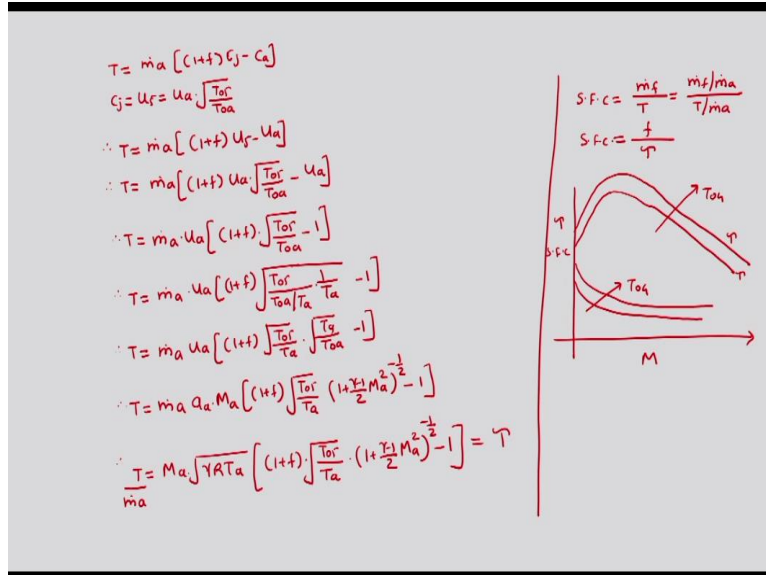 T = ṁa [(1+f) Cj - Ca]
Cj = U5 = Ua·√(T05/T0a)
∴ T = ṁa [(1+f) U5 - Ua]
∴ T = ṁa [(1+f) Ua·√(T05/T0a) - Ua]
∴ T = ṁa·Ua [(1+f)·√(T05/T0a) - 1]
∴ T = ṁa·Ua [(1+f) √(T05/(T0a/Ta) · 1/Ta) - 1]
∴ T = ṁa Ua [(1+f) √(T05/Ta) · √(Ta/T0a) - 1]
∴ T = ṁa aa·Ma [(1+f) √(T05/Ta) (1+(γ-1)/2 Ma²)^(-1/2) - 1]
∴ T/ṁa = Ma·√(γRTa) [(1+f)·√(T05/Ta) · (1+(γ-1)/2 Ma²)^(-1/2) - 1] = τ
S.F.C = ṁf/T = (ṁf/ṁa)/(T/ṁa)
S.F.C. = f/τ
T04
τ
S.F.C
τ
τ
T04
M